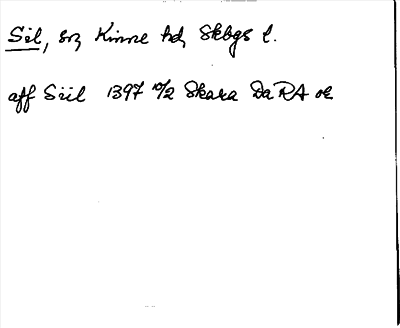 Sil, sn, Kinne hd, Skbgs l.
aff Siil 1397 10/2 Skara DaRA or